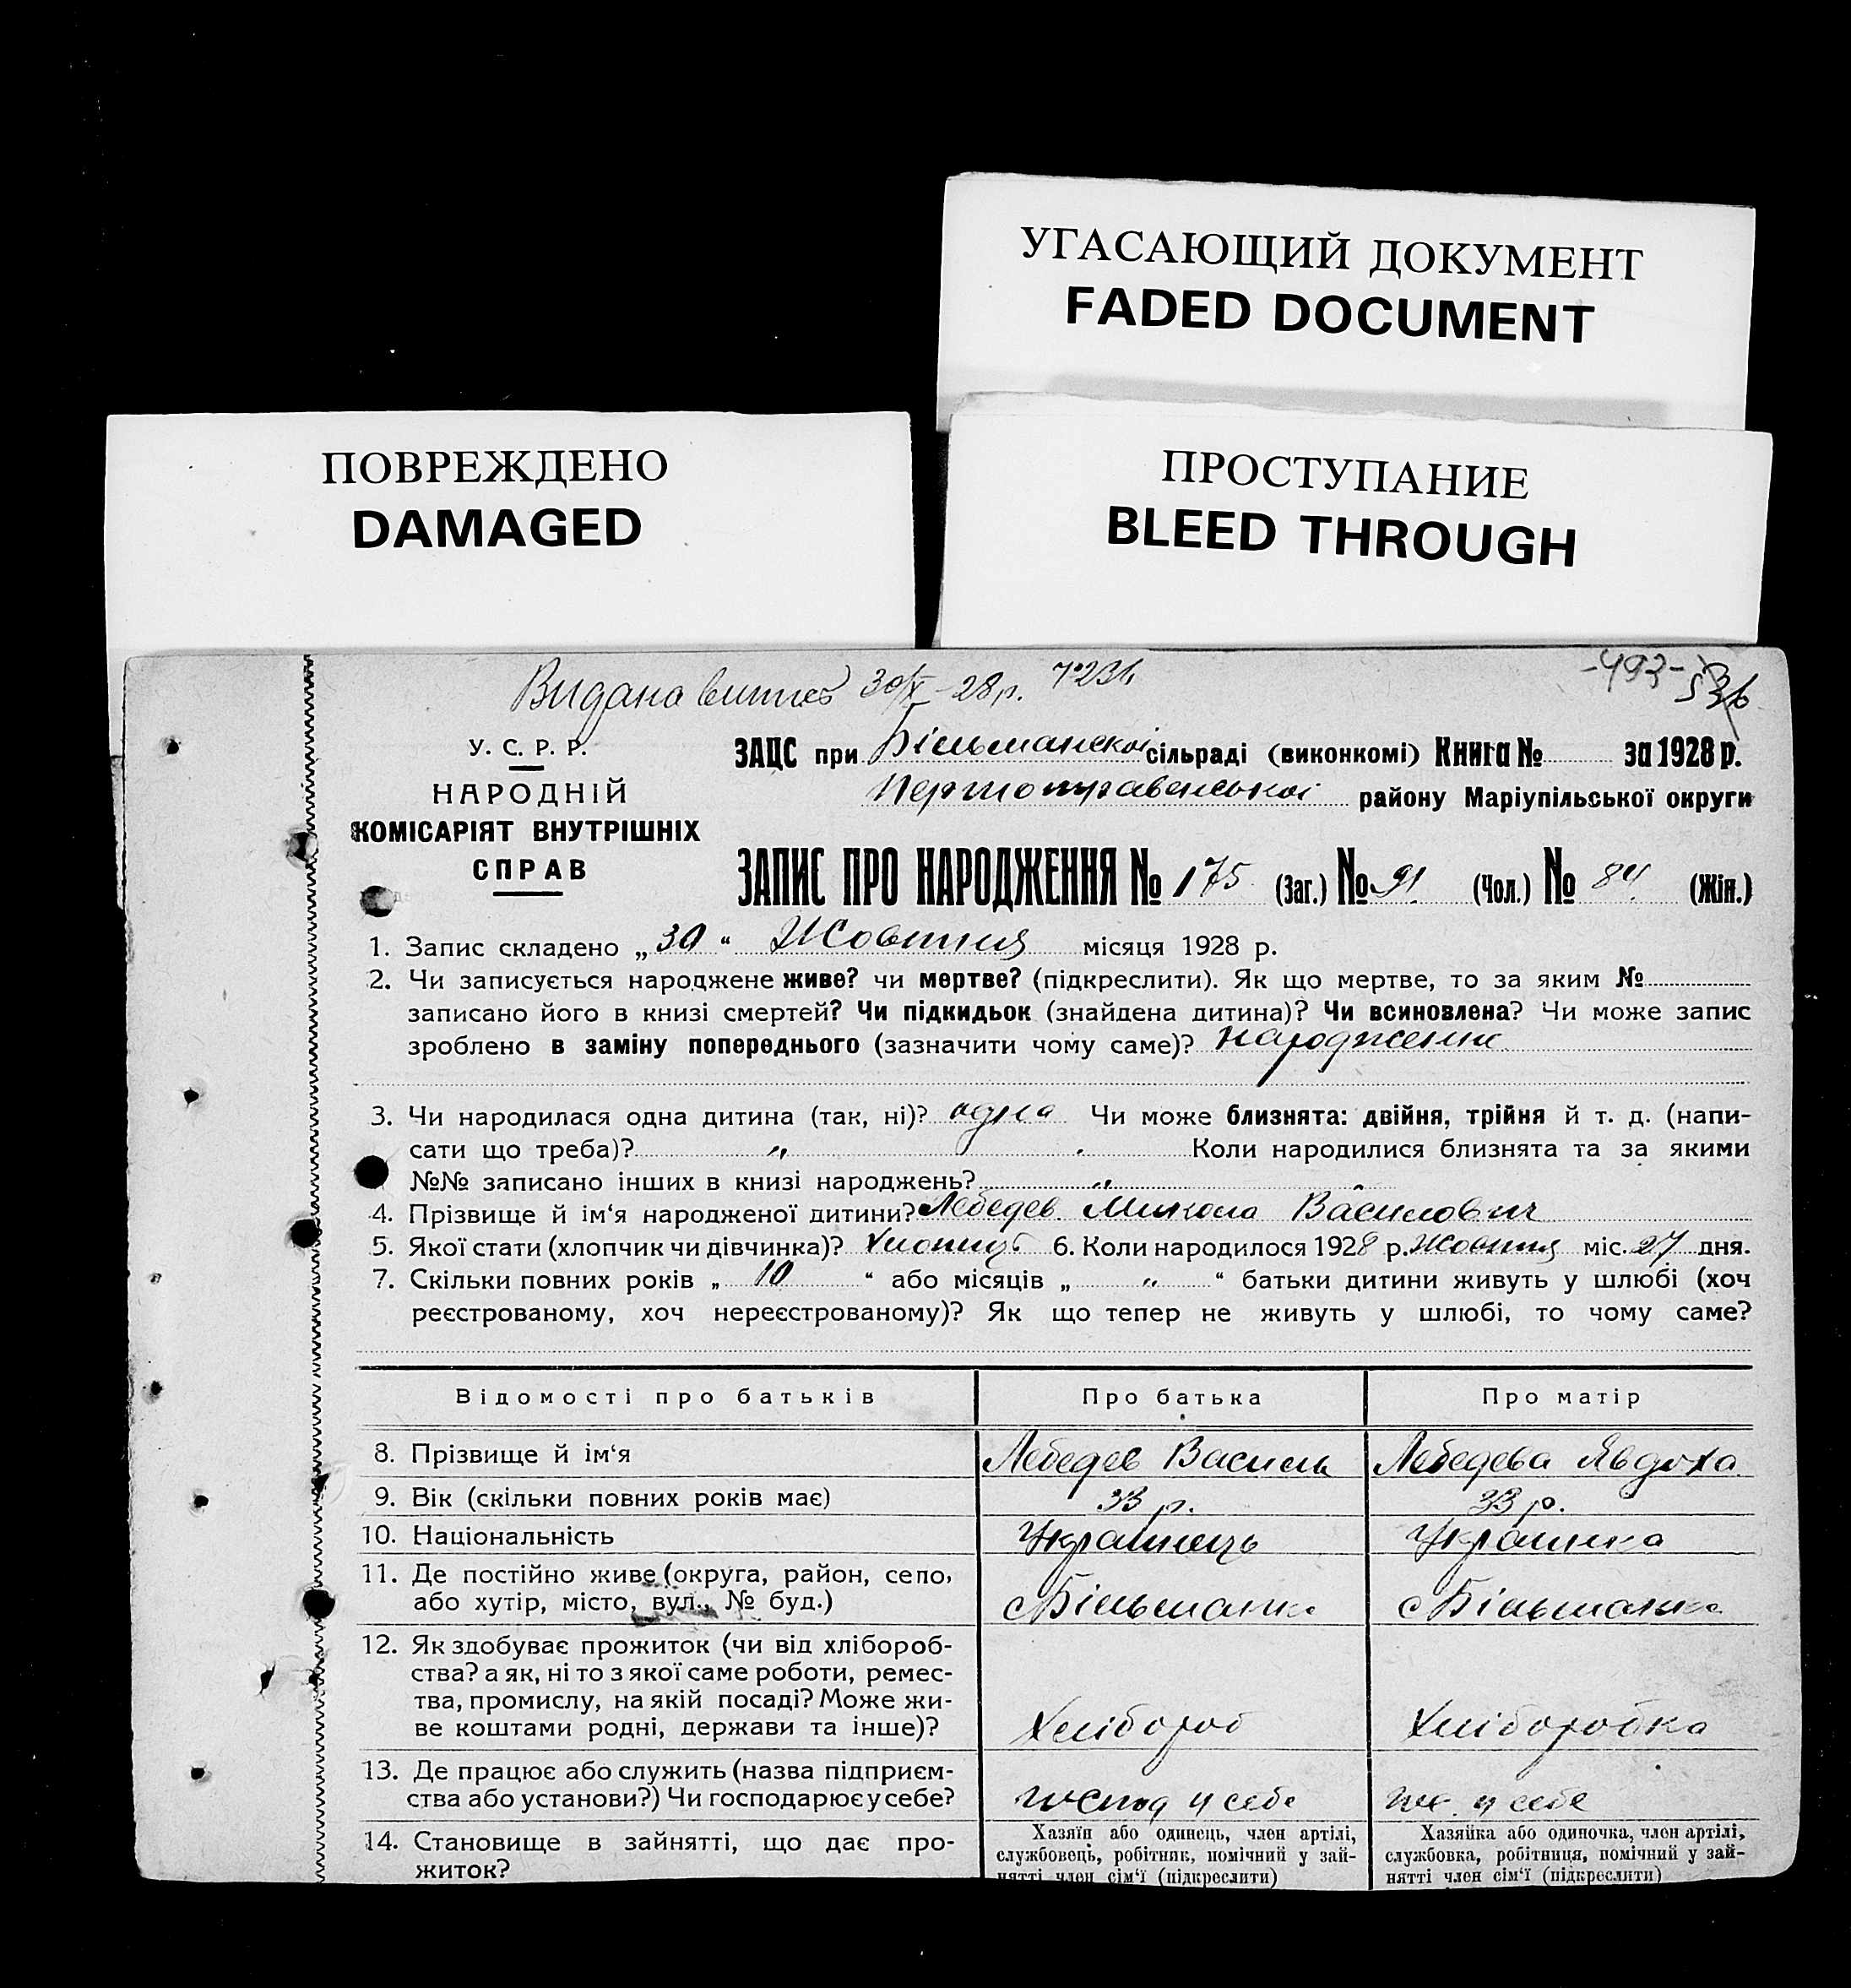 УГАСАЮЩИЙ ДОКУМЕНТ
FADED DOCUMENT
ПОВРЕЖДЕНО
DAMAGED
ПРОСТУПАНИЕ
BLEED THROUGH
Видана 30/X-28р.
-493-
У. С. Р. Р.
НАРОДНІЙ
КОМІСАРІЯТ ВНУТРІШНІХ
СПРАВ
ЗАЦС при Більманской сільраді (виконкомі) Книга № за 1928 р.
району Маріупільської округи
ЗАПИС ПРО НАРОДЖЕННЯ № 175 (Заг.) № 91 (Чол.) № 84 (Жін.)
1. Запис складено „30“ Жовтня місяця 1928 р.
2. Чи записується народжене живе? чи мертве? (підкреслити). Як що мертве, то за яким №
записано його в книзі смертей? Чи підкидьок (знайдена дитина)? Чи всиновлена? Чи може запис
зроблено в заміну попереднього (зазначити чому саме)? народження
3. Чи народилася одна дитина (так, ні)? одна Чи може близнята: двійня, трійня й т. д. (напи-
сати що треба)? „ Коли народилися близнята та за якими
№№ записано інших в книзі народжень? „
4. Прізвище й ім‘я народженої дитини? Лебедев Микола Василович
5. Якої стати (хлопчик чи дівчинка)? хлопчик 6. Коли народилося 1928 р. Жовтня міс. 27 дня.
7. Скільки повних років „ 10 “ або місяців „ „ “ батьки дитини живуть у шлюбі (хоч
реєстрованому, хоч нереєстрованому)? Як що тепер не живуть у шлюбі, то чому саме?
Відомості про батьків Про батька Про матір
8. Прізвище й ім‘я Лебедев Василь Лебедева Явдоха
9. Вік (скільки повних років має) 33 р. 33 р.
10. Національність Українець Українка
11. Де постійно живе (округа, район, село,
або хутір, місто, вул., № буд.) с Більманка с Більманка
12. Як здобуває прожиток (чи від хлібороб-
ства? а як, ні то з якої саме роботи, ремес-
тва, промислу, на якій посаді? Може жи-
ве коштами родні, держави та інше)? Хлібороб Хліборобка
13. Де працює або служить (назва підприєм-
ства або установи?) Чи господарює у себе? господ у себе у себе
14. Становище в зайнятті, що дає про-
житок?
Хазяїн або одинець, член артілі,
службовець, робітник, помічний у зай-
нятті член сім‘ї (підкреслити)
Хазяйка або одиночка, член артілі,
службовка, робітниця, помічний у зай-
нятті член сім‘ї (підкреслити)